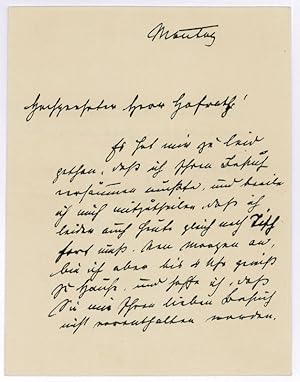 Montag
Hochgeehrter Herr Hofrath!
Es hat mir so leid
gethan, daß ich Ihren Besuch
versäumen mußte, und beeile
ich mich mitzutheilen, daß ich
leider auch heute gleich nach Tisch
fort muß. Von morgen an,
bin ich aber bis 4 Uhr gewiß
zu Hause, und hoffe ich, daß
Sie mir Ihren lieben Besuch
nicht vorenthalten werden.